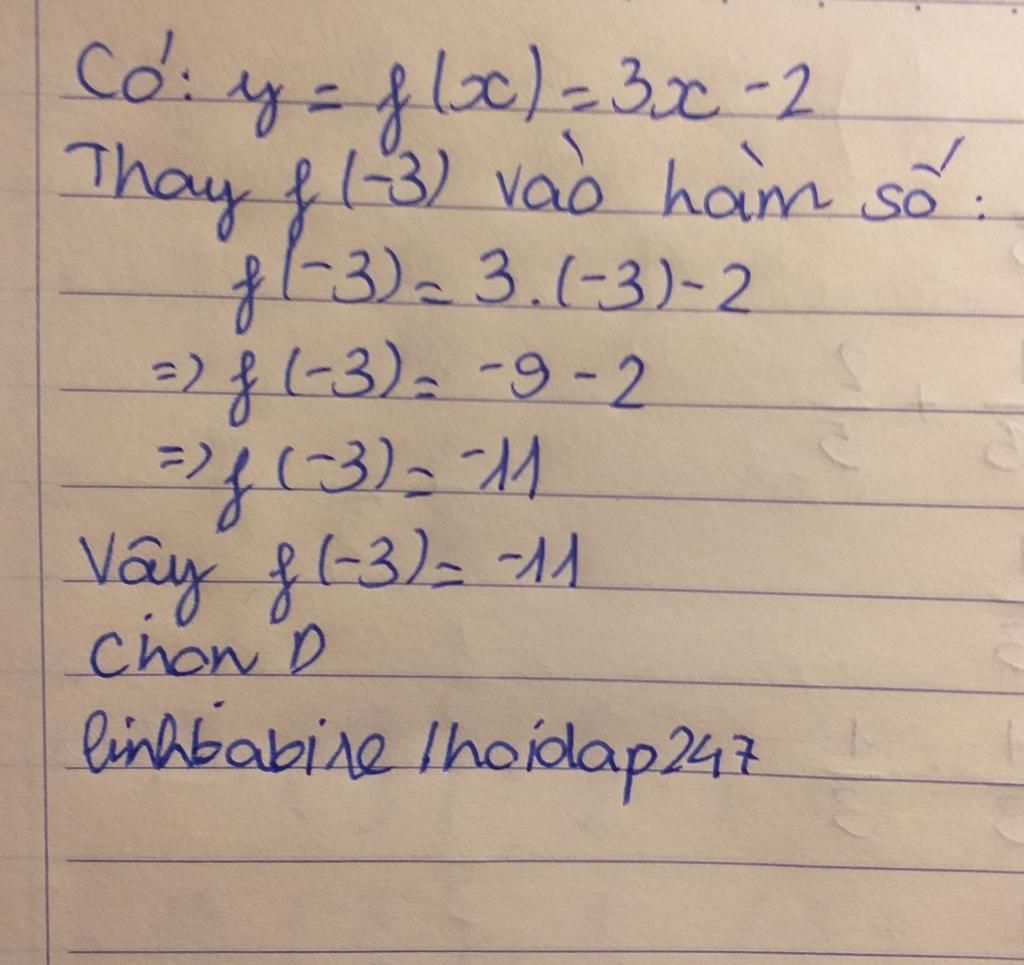 Có: y = f(x) = 3x - 2
Thay f(-3) vào hàm số:
f(-3) = 3.(-3) - 2
=> f(-3) = -9 - 2
=> f(-3) = -11
Vậy f(-3) = -11
Chọn D
linhbabixe /hoidap247